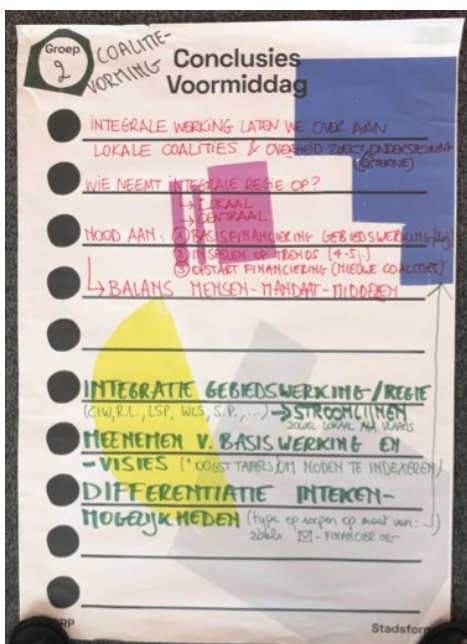 Groep
2
COALITIE-
VORMING
Conclusies
Voormiddag
INTEGRALE WERKING LATEN WE OVER AAN
LOKALE COALITIES & OVERHEID ZOEKT ONDERSTEUNING
(EXTERNE)
WIE NEEMT INTEGRALE REGIE OP?
↳ LOKAAL
↳ CENTRAAL
NOOD AAN: ① BASISFINANCIERING GEBIEDSWERKING
② INSPELEN OP TRENDS (4-5j.)
③ OPSTART FINANCIERING (NIEUWE COALITIES)
↳ BALANS MENSEN-MANDAAT-MIDDELEN
INTEGRATIE GEBIEDSWERKING-/REGIE
(CIW, R.L., LSP, WLS, S.P., ...) → STROOMLIJNEN
ZOWEL LOKAAL VLAAMS
MEENEMEN V. BASISWERKING EN
-VISIES (* OOGSTTAFELS) OM NODEN TE INDEXEREN)
DIFFERENTIATIE INTEKEN-
MOGELIJKHEDEN (type oproepen op maat van:
☑ - FINANCIERING
Stadsfor